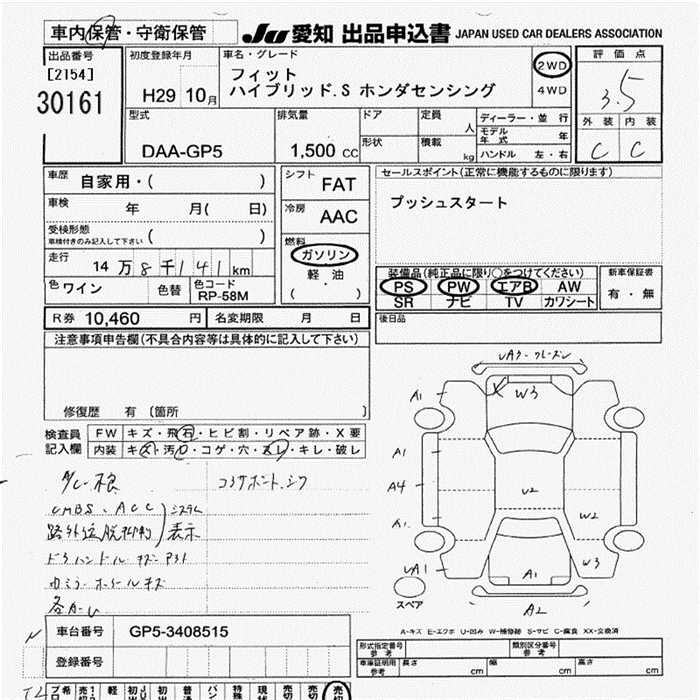 車内保管・守衛保管
JU 愛知 出品申込書 JAPAN USED CAR DEALERS ASSOCIATION
出品番号
[2154]
30161
初度登録年月
H29 10月
車名・グレード
フィット
ハイブリッド.S ホンダセンシング
2WD
4WD
評価点
3.5
外装 内装
C C
型式
DAA-GP5
排気量
1,500 cc
ドア
形状
定員 人
積載 kg
ディーラー・並行
モデル年式 年
ハンドル 左・右
車歴 自家用・( )
車検 年 月( 日)
受検形態
車検付きのみ記入して下さい ( )
走行 14万8千141km
色 ワイン 色替
色コード
RP-58M
シフト FAT
冷房 AAC
燃料
ガソリン
軽油
( ・ )
セールスポイント(正常に機能するものに限ります)
プッシュスタート
装備品(純正品に限り○をつけてください)
PS PW エアB AW
SR ナビ TV カワシート
新車保証書
有・無
R券 10,460 円 名変期限 月 日
後日品
注意事項申告欄(不具合内容等は具体的に記入して下さい)
修復歴 有 〔箇所 〕
検査員記入欄
FW キズ・飛石・ヒビ割・リペア跡・X要
内装 キズ・汚レ・コゲ・穴・スレ・キレ・破レ
CMBS、ACC システム
路外逸脱抑制 表示
A1
W3
A1
A4
A1
U2
W2
W3
A1
A2
スペア
A-キズ E-エクボ U-凹み W-補修跡 S-サビ C-腐食 XX-交換済
車台番号 GP5-3408515
登録番号
形式指定番号 参考
類別区分番号 参考
車庫証明用 参考 長さ cm 幅 cm 高さ cm